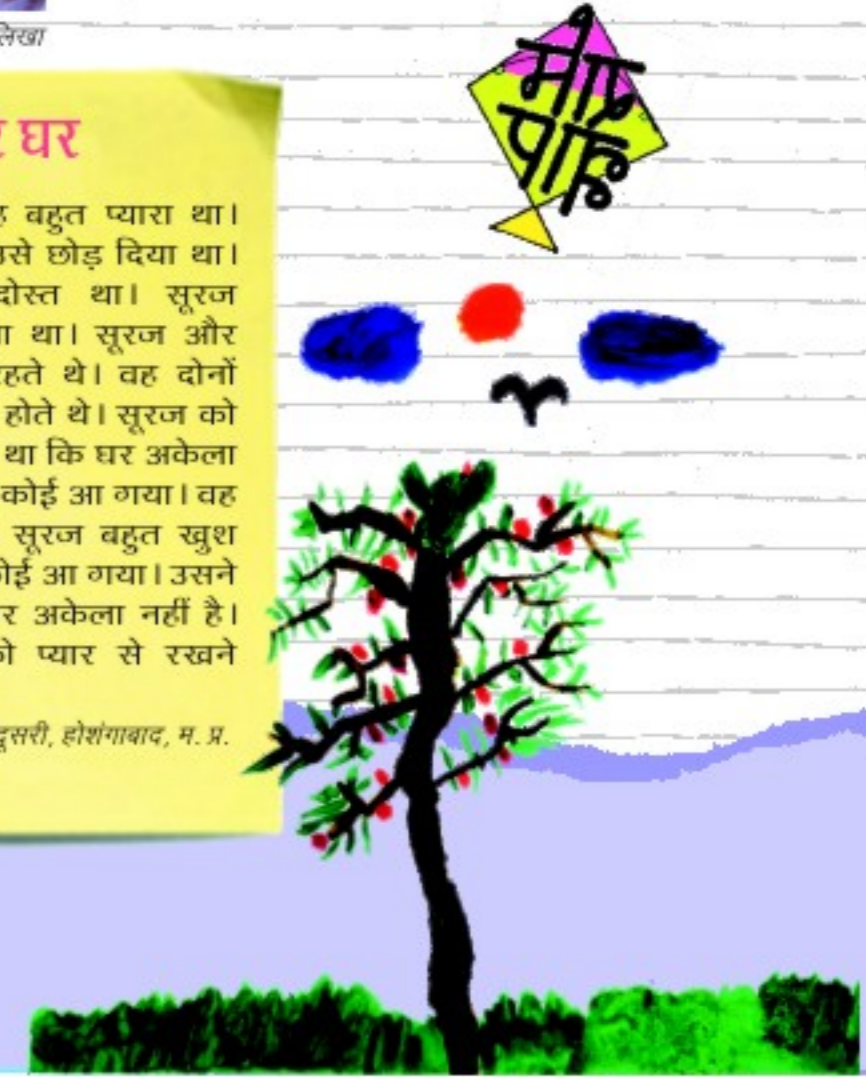 लिखा
घर
बहुत प्यारा था।
उसे छोड़ दिया था।
दोस्त था। सूरज
था। सूरज और
रहते थे। वह दोनों
होते थे। सूरज को
था कि घर अकेला
कोई आ गया। वह
सूरज बहुत खुश
कोई आ गया। उसने
अकेला नहीं है।
प्यार से रखने
दूसरी, होशंगाबाद, म. प्र.